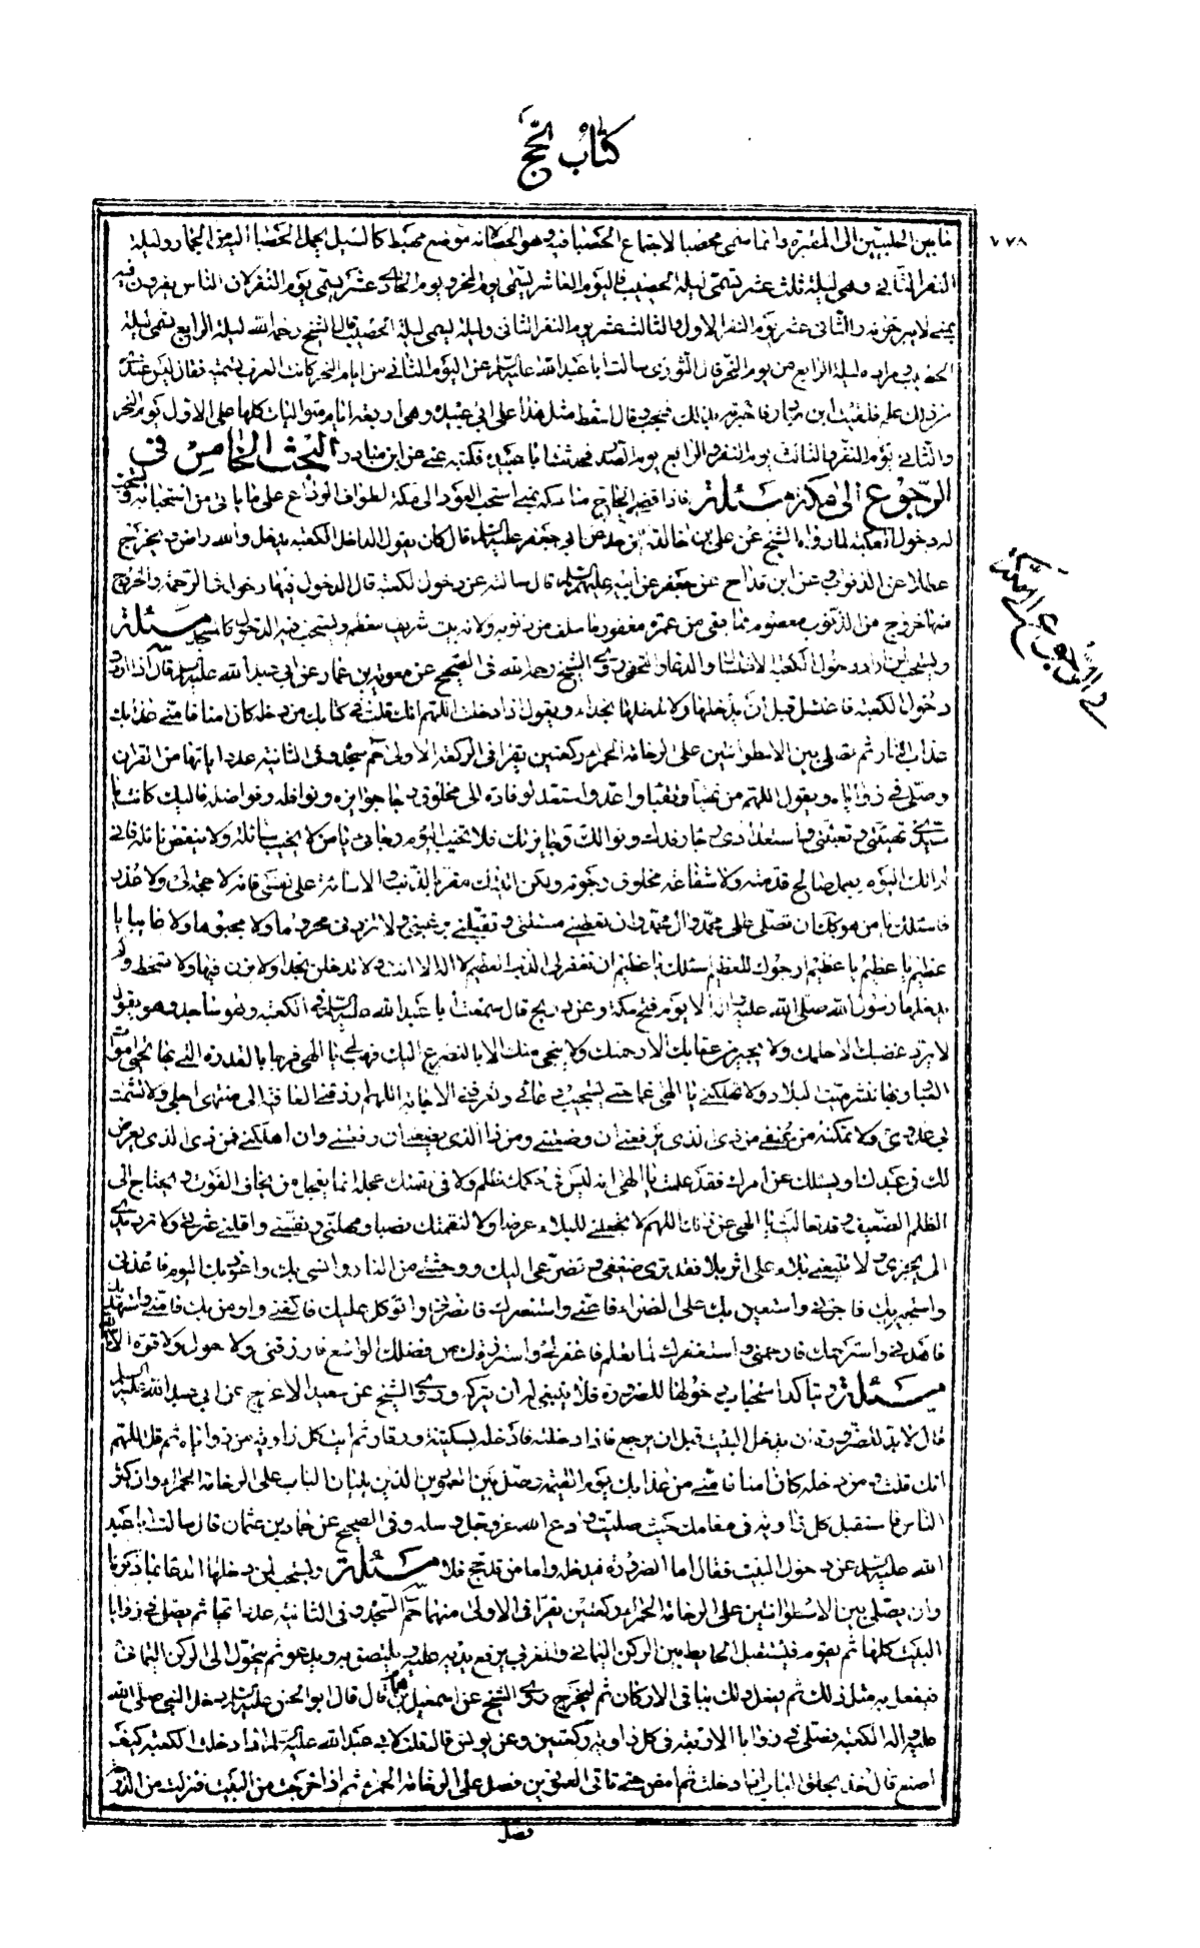 كتاب الحج
٧٧٨
ما بين الجبلين الى المقبرة وانما سمى محصبا لاجتماع الحصباء فيه وهو الحصا لانه موضع مهبط كالسيل يحمل الحصباء اليه من الجمار وليلة
النفر الثاني وهى ليلة ثلث عشر تسمى ليلة الحصيب فاليوم العاشر يسمى يوم النحر ويوم الحادي عشر يسمى يوم النفر لان الناس يفرون فيه
بمنى لا يبرحونه والثانى عشر يوم النفر الاول والثالث عشر يوم النفر الثانى وليلة يسمى ليلة الحصيب قال الشيخ رحمه الله ليلة الرابع تسمى ليلة
ليلة الرابع من يوم النحر قال الثورى سالت ابا عبد الله عليه السلام عن اليوم الثانى من ايام النحر ما كانت العرب تسميه فقال ليس عندى
من ذلك علم فلقيت ابن فاخبرته بذلك فعجب وقال اسقط مثل هذا على ابى عبيد وهى اربعة ايام متواليات كلها على الاول يوم النحر
والثانى يوم النفر والثالث يوم النفر والرابع يوم الصدر فحدثت ابا عبيد فكتبه عنى عن ابن مناذر البحث الخامس فى
الرجوع الى مكة مسئلة فاذا قضى الحاج مناسكه بمنى استحب العود الى مكة لطواف الوداع على ما ياتى من استحبابه ويستحب
له دخول الكعبة لما رواه الشيخ عن على بن خالد عن ابى جعفر عليه السلام قال كان يقول الداخل الكعبة يدخل والله راض ويخرج
عطلا من الذنوب وعن ابن قداح عن جعفر عن ابيه عليهما السلام قال سالته عن دخول الكعبة قال الدخول فيها دخول فى رحمة الله والخروج
منها خروج من الذنوب معصوم فيما بقى من عمره مغفور ما سلف من ذنوبه ولانه بيت شريف معظم ويستحب فيه الدخول كالمسجد مسئلة
ويستحب لمن اراد دخول الكعبة الاغتسال والدعاء والتحفى روى الشيخ رحمه الله فى الصحيح عن معوية بن عمار عن ابى عبد الله عليه السلام قال اذا اردت
دخول الكعبة فاغتسل قبل ان تدخلها ولا تدخلها بحذاء ويقول اذا دخلت اللهم انك قلت فى كتابك من دخله كان امنا فامنى من عذابك
عذاب النار ثم تصلى بين الاسطوانتين على الرخامة الحمراء ركعتين يقرا فى الركعة الاولى حم سجدة وفى الثانية عدد اياتها من القران
وصلى فى زواياه ويقول اللهم من تهيأ وتعبأ واعد واستعد لوفادة الى مخلوق رجاء جوائزه ونوافله وفواضله فاليك كانت يا
سيدى تهيئتى وتعبئتى واستعدادى رجاء رفدك ونوالك وجائزتك فلا تخيب اليوم رجائى يا من لا يخيب سائله ولا ينقص نائله فانى
لم اتك اليوم بعمل صالح قدمته ولا شفاعة مخلوق رجوته ولكن اتيتك مقرا بالذنب والاساءة على نفسى فانه لا حجة لى ولا عذر
فاسئلك يا من هو كذلك ان تصلى على محمد وال محمد وان تعطينى مسئلتى وتقبلنى برغبتى ولا تردنى محروما ولا مجبوها ولا خائبا يا
عظيم يا عظيم يا عظيم ارجوك للعظيم اسئلك يا عظيم ان تغفر لى الذنب العظيم لا اله الا انت ولا تدخلن بحذاء ولا تبزق فيها ولا تمتخط ولم
يدخلها رسول الله صلى الله عليه واله الا يوم فتح مكة وعن ذريح قال سمعت ابا عبد الله عليه السلام فى الكعبة وهو ساجد وهو يقول
لا يرد غضبك الا حلمك ولا يجير من عقابك الا رحمتك ولا ينجى منك الا بالتضرع اليك فهب لى يا الهى فرجا بالقدرة التى بها تحيى اموات
العباد وبها تنشر ميت البلاد ولا تهلكنى يا الهى غما حتى تستجيب دعائى وتعرفنى الاجابة اللهم ارزقنى العافية الى منتهى اجلى ولا تشمت
بى عدوى ولا تمكنه من عنقى من ذا الذى يرفعنى ان وضعتنى ومن ذا الذى يضعنى ان رفعتنى وان اهلكتنى فمن ذا الذى يعرض
لك فى عبدك او يسئلك عن امرك فقد علمت يا الهى انه ليس فى حكمك ظلم ولا فى نقمتك عجلة انما يعجل من يخاف الفوت ويحتاج الى
الظلم الضعيف وقد تعاليت يا الهى عن ذلك اللهم لا تجعلنى للبلاء غرضا ولا لنقمتك نصبا ومهلنى ونفسنى واقلنى عثرتى ولا ترد يدى
الى نحرى ولا تتبعنى ببلاء على اثر بلاء فقد ترى ضعفى وتضرعى اليك ووحشتى من الناس وانسى بك واعوذ بك اليوم فاعذنى
واستجير بك فاجرنى واستعين بك على الضراء فاعنى واستنصرك فانصرنى واتوكل عليك فاكفنى واومن بك فامنى واستهديك
فاهدنى واسترحمك فارحمنى واستغفرك لما تعلم فاغفر لى واسترزقك من فضلك الواسع فارزقنى ولا حول ولا قوة الا بالله
مسئلة ويتاكد استحباب دخولها للصرورة فلا ينبغى له ان يتركه روى الشيخ عن سعيد الاعرج عن ابى عبد الله عليه السلام
قال لا بد للصرورة ان يدخل البيت قبل ان يرجع فاذا دخلته فادخله بسكينة ووقار ثم ايت كل زاوية من زواياه ثم قل اللهم
انك قلت ومن دخله كان امنا فامنى من عذابك يوم القيمة وصل بين العمودين الذين يليان الباب على الرخامة الحمراء وان كثر
الناس فاستقبل كل زاوية فى مقامك حيث صليت وادع الله عز وجل وسله وفى الصحيح عن حماد بن عثمان قال سالت ابا عبد
الله عليه السلام عن دخول البيت فقال اما الصرورة فيدخله واما من قد حج فلا مسئلة ويستحب لمن دخلها الدعاء بما ذكرنا
وان يصلى بين الاسطوانتين على الرخامة الحمراء ركعتين يقرا فى الاولى منهما حم السجدة وفى الثانية عدد اياتها ثم يصلى فى زوايا
البيت كلها ثم يقوم فيستقبل الحايط بين الركن اليمانى والغربى يرفع يديه عليه يلتصق به ويدعو ثم يتحول الى الركن اليمانى
فيفعل به مثل ذلك ثم يفعل ذلك بباقى الاركان ثم ليخرج روى الشيخ عن اسمعيل بن همام قال قال ابو الحسن عليه السلام دخل النبى صلى الله
عليه واله الكعبة فصلى فى زواياها الاربعة فى كل زاوية ركعتين وعن يونس قال قلت لابى عبد الله عليه السلام اذا دخلت الكعبة كيف
اصنع قال خذ بحلقتى الباب اذا دخلت ثم امض حتى تاتى العمودين فصل على الرخامة الحمراء ثم اذا خرجت من البيت فنزلت من الدرجة
فصل
فى الرجوع الى مكة